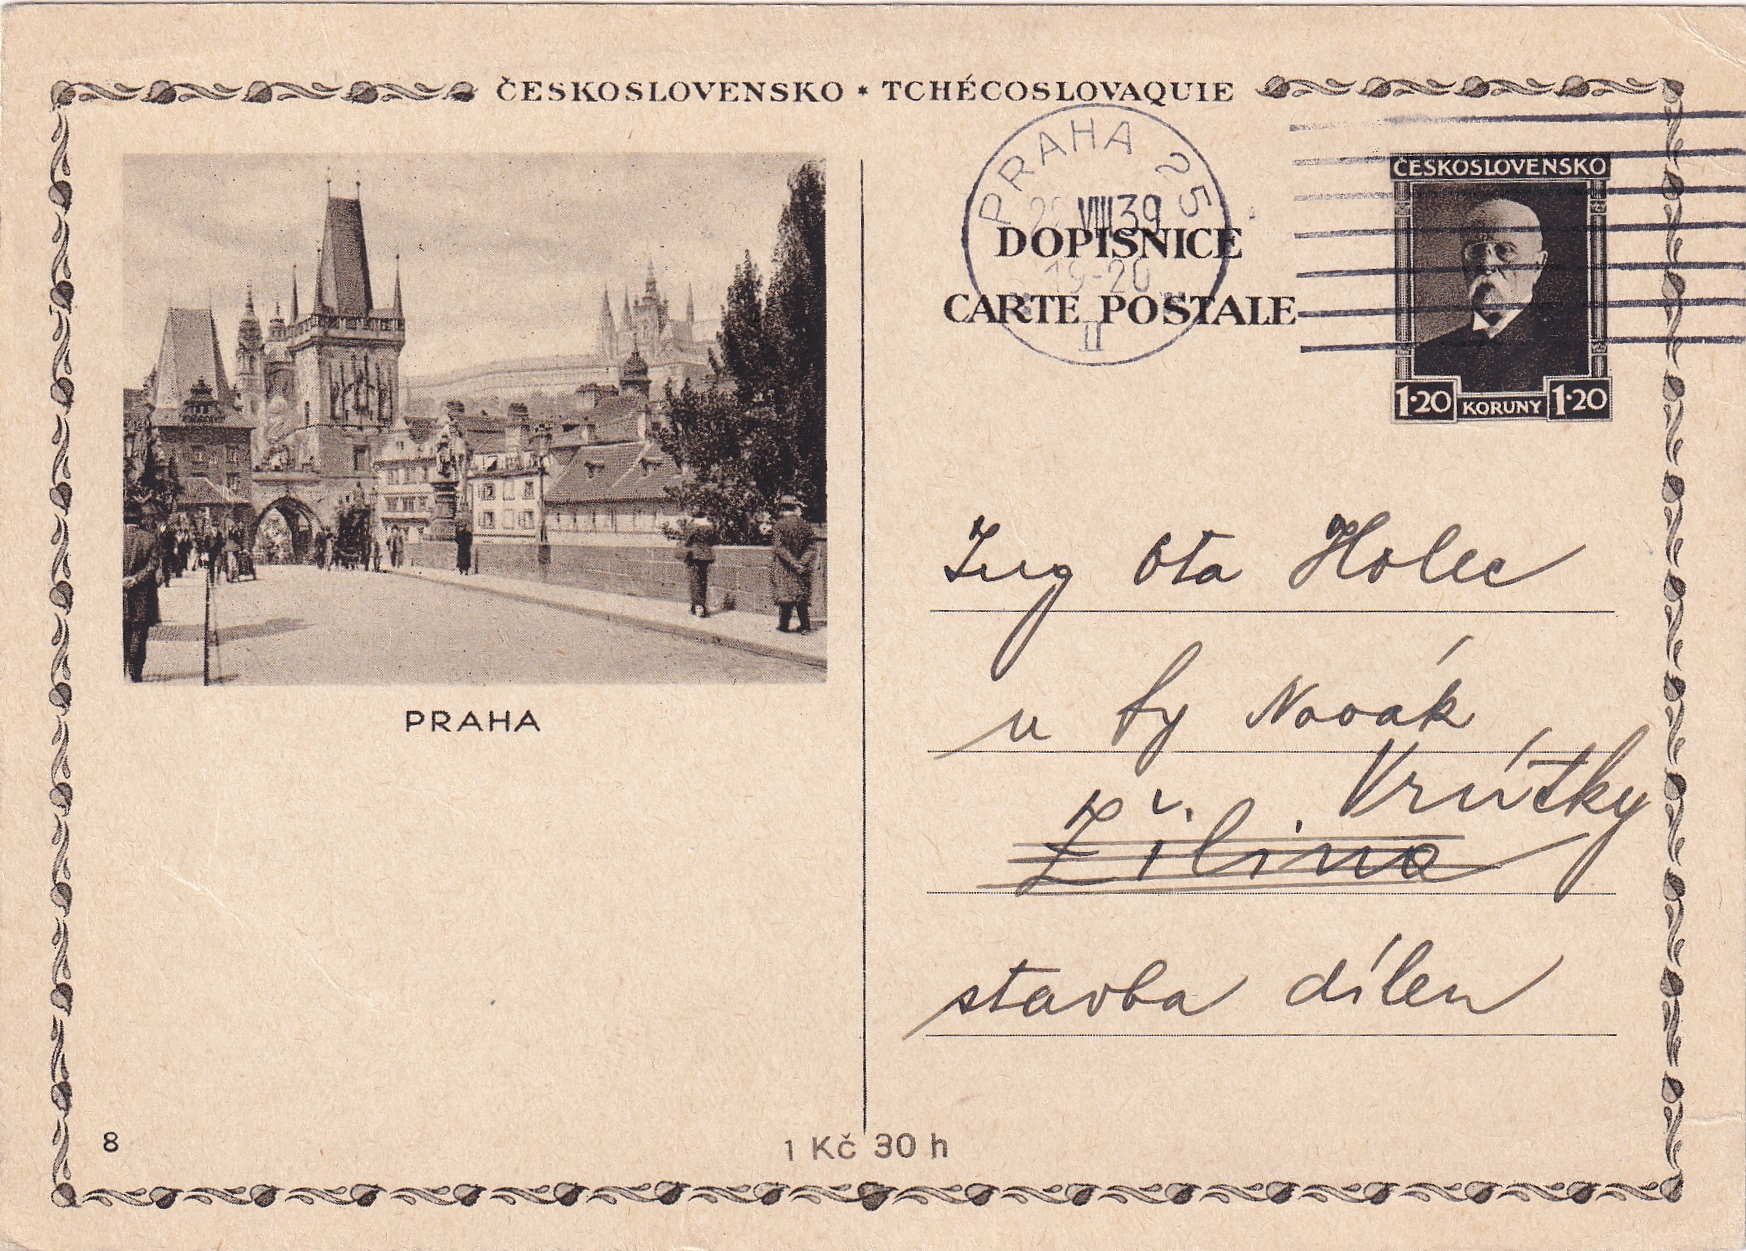 ČESKOSLOVENSKO * TCHÉCOSLOVAQUIE
PRAHA 25
VIII 39
19-20
II
DOPISNICE
CARTE POSTALE
ČESKOSLOVENSKO
1·20 KORUNY 1·20
PRAHA
Ing Ota Holec
u fy Novák
Vrútky
Žilina
stavba dílen
8
1 Kč 30 h